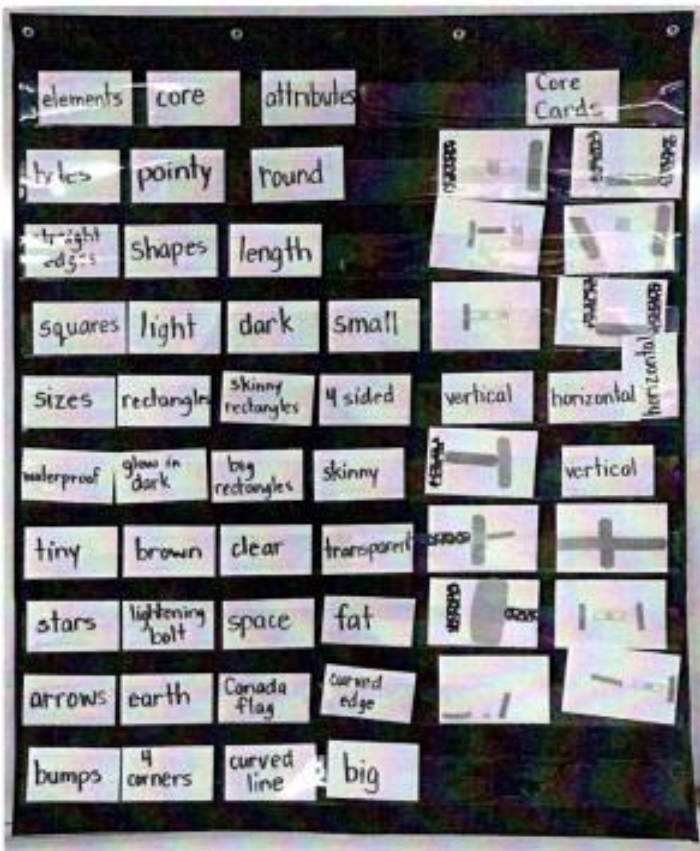 elements core attributes Core
Cards
holes pointy round
straight
edges shapes length
squares light dark small
sizes rectangles skinny
rectangles 4 sided vertical horizontal horizontal
waterproof glow in
dark big
rectangles skinny vertical
tiny brown clear transparent
stars lightening
bolt space fat
arrows earth Canada
flag curved
edge
bumps 4
corners curved
line big